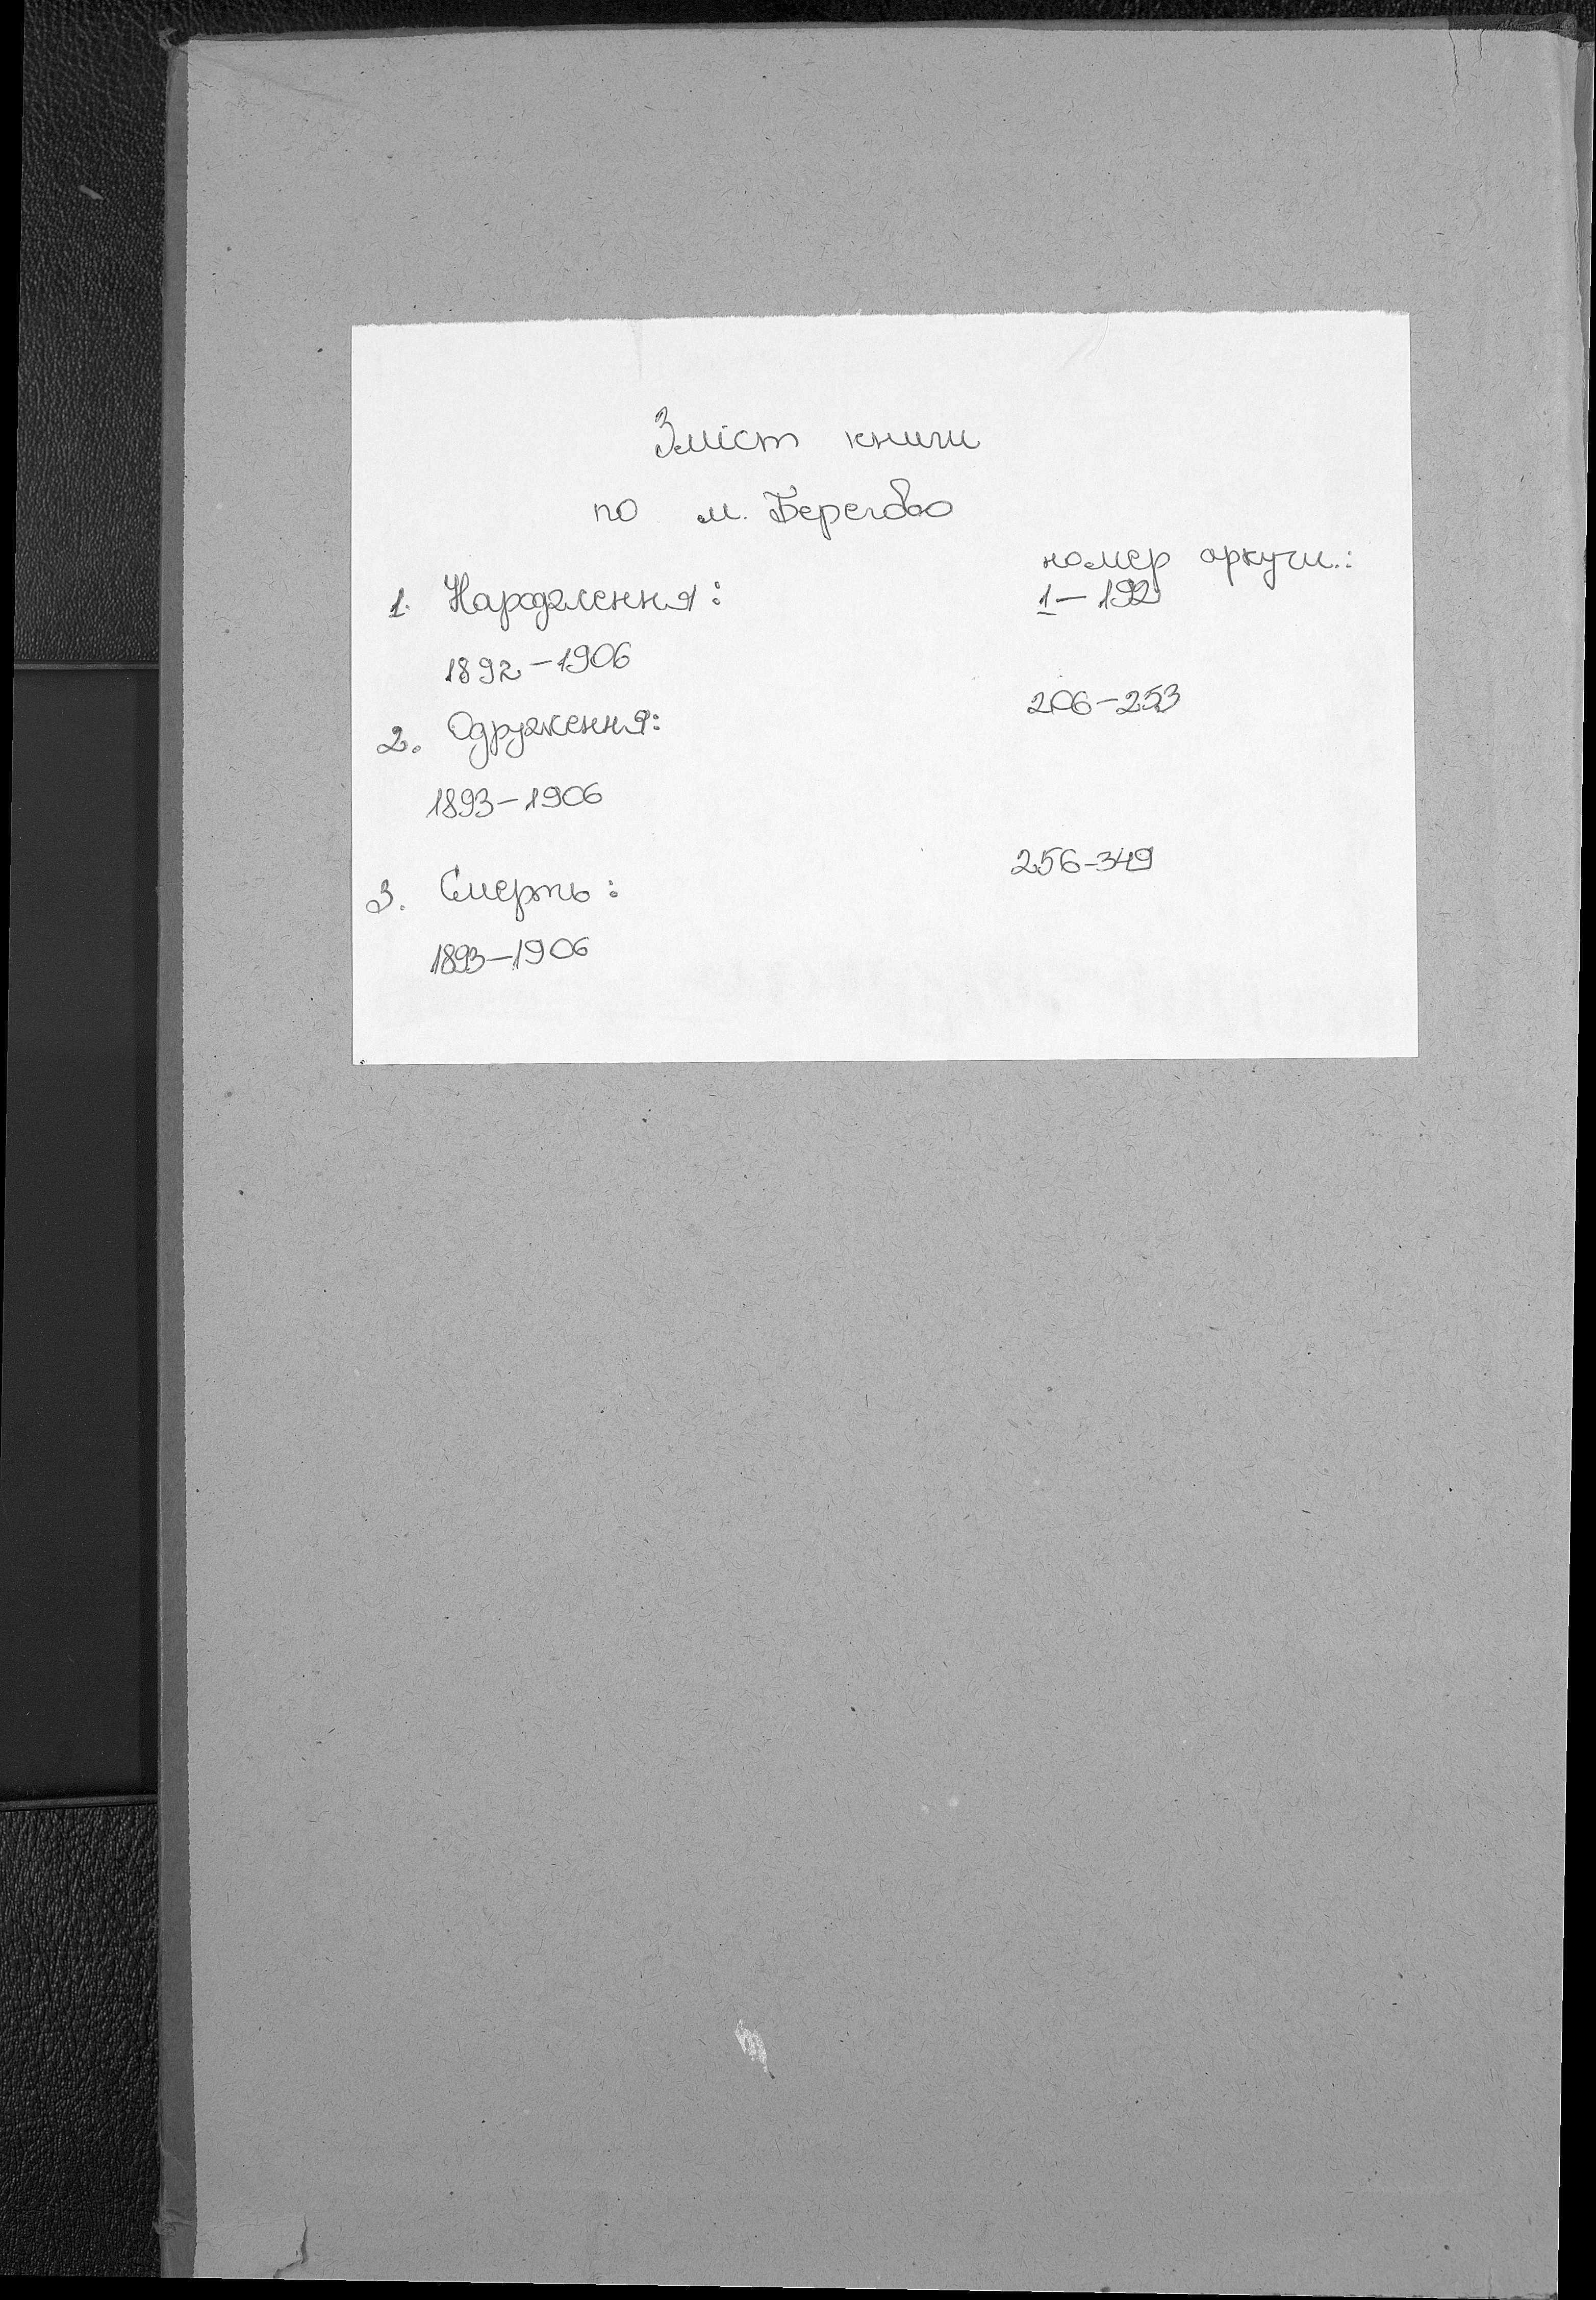 Зміст книги
по м. Берегово
номер аркуш.:
1. Народження: 1–192
1892–1906
206–253
2. Одруження:
1893–1906
256–349
3. Смерть:
1893–1906